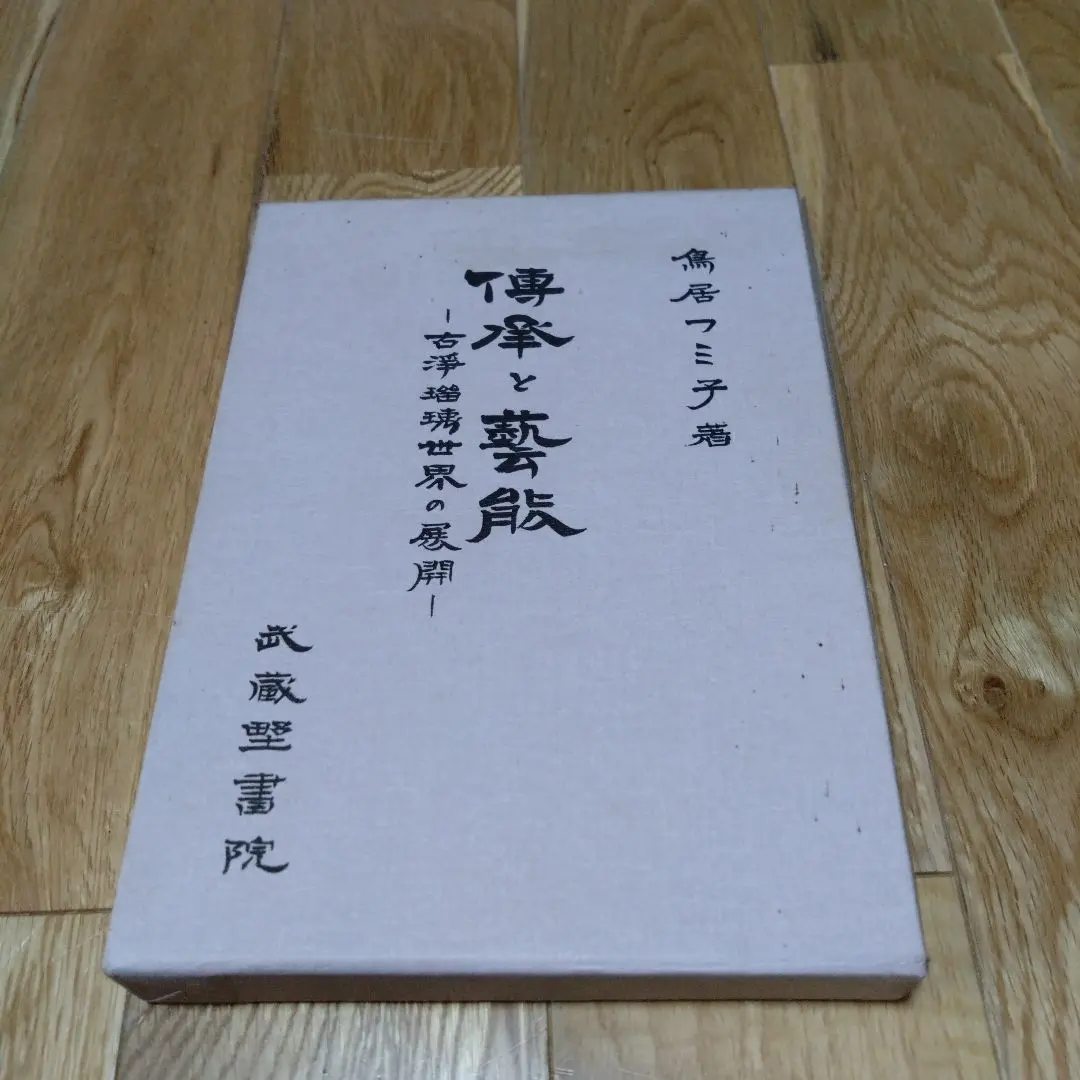 鳥居フミ子著
傳承と藝能
―古淨瑠璃世界の展開―
武藏野書院